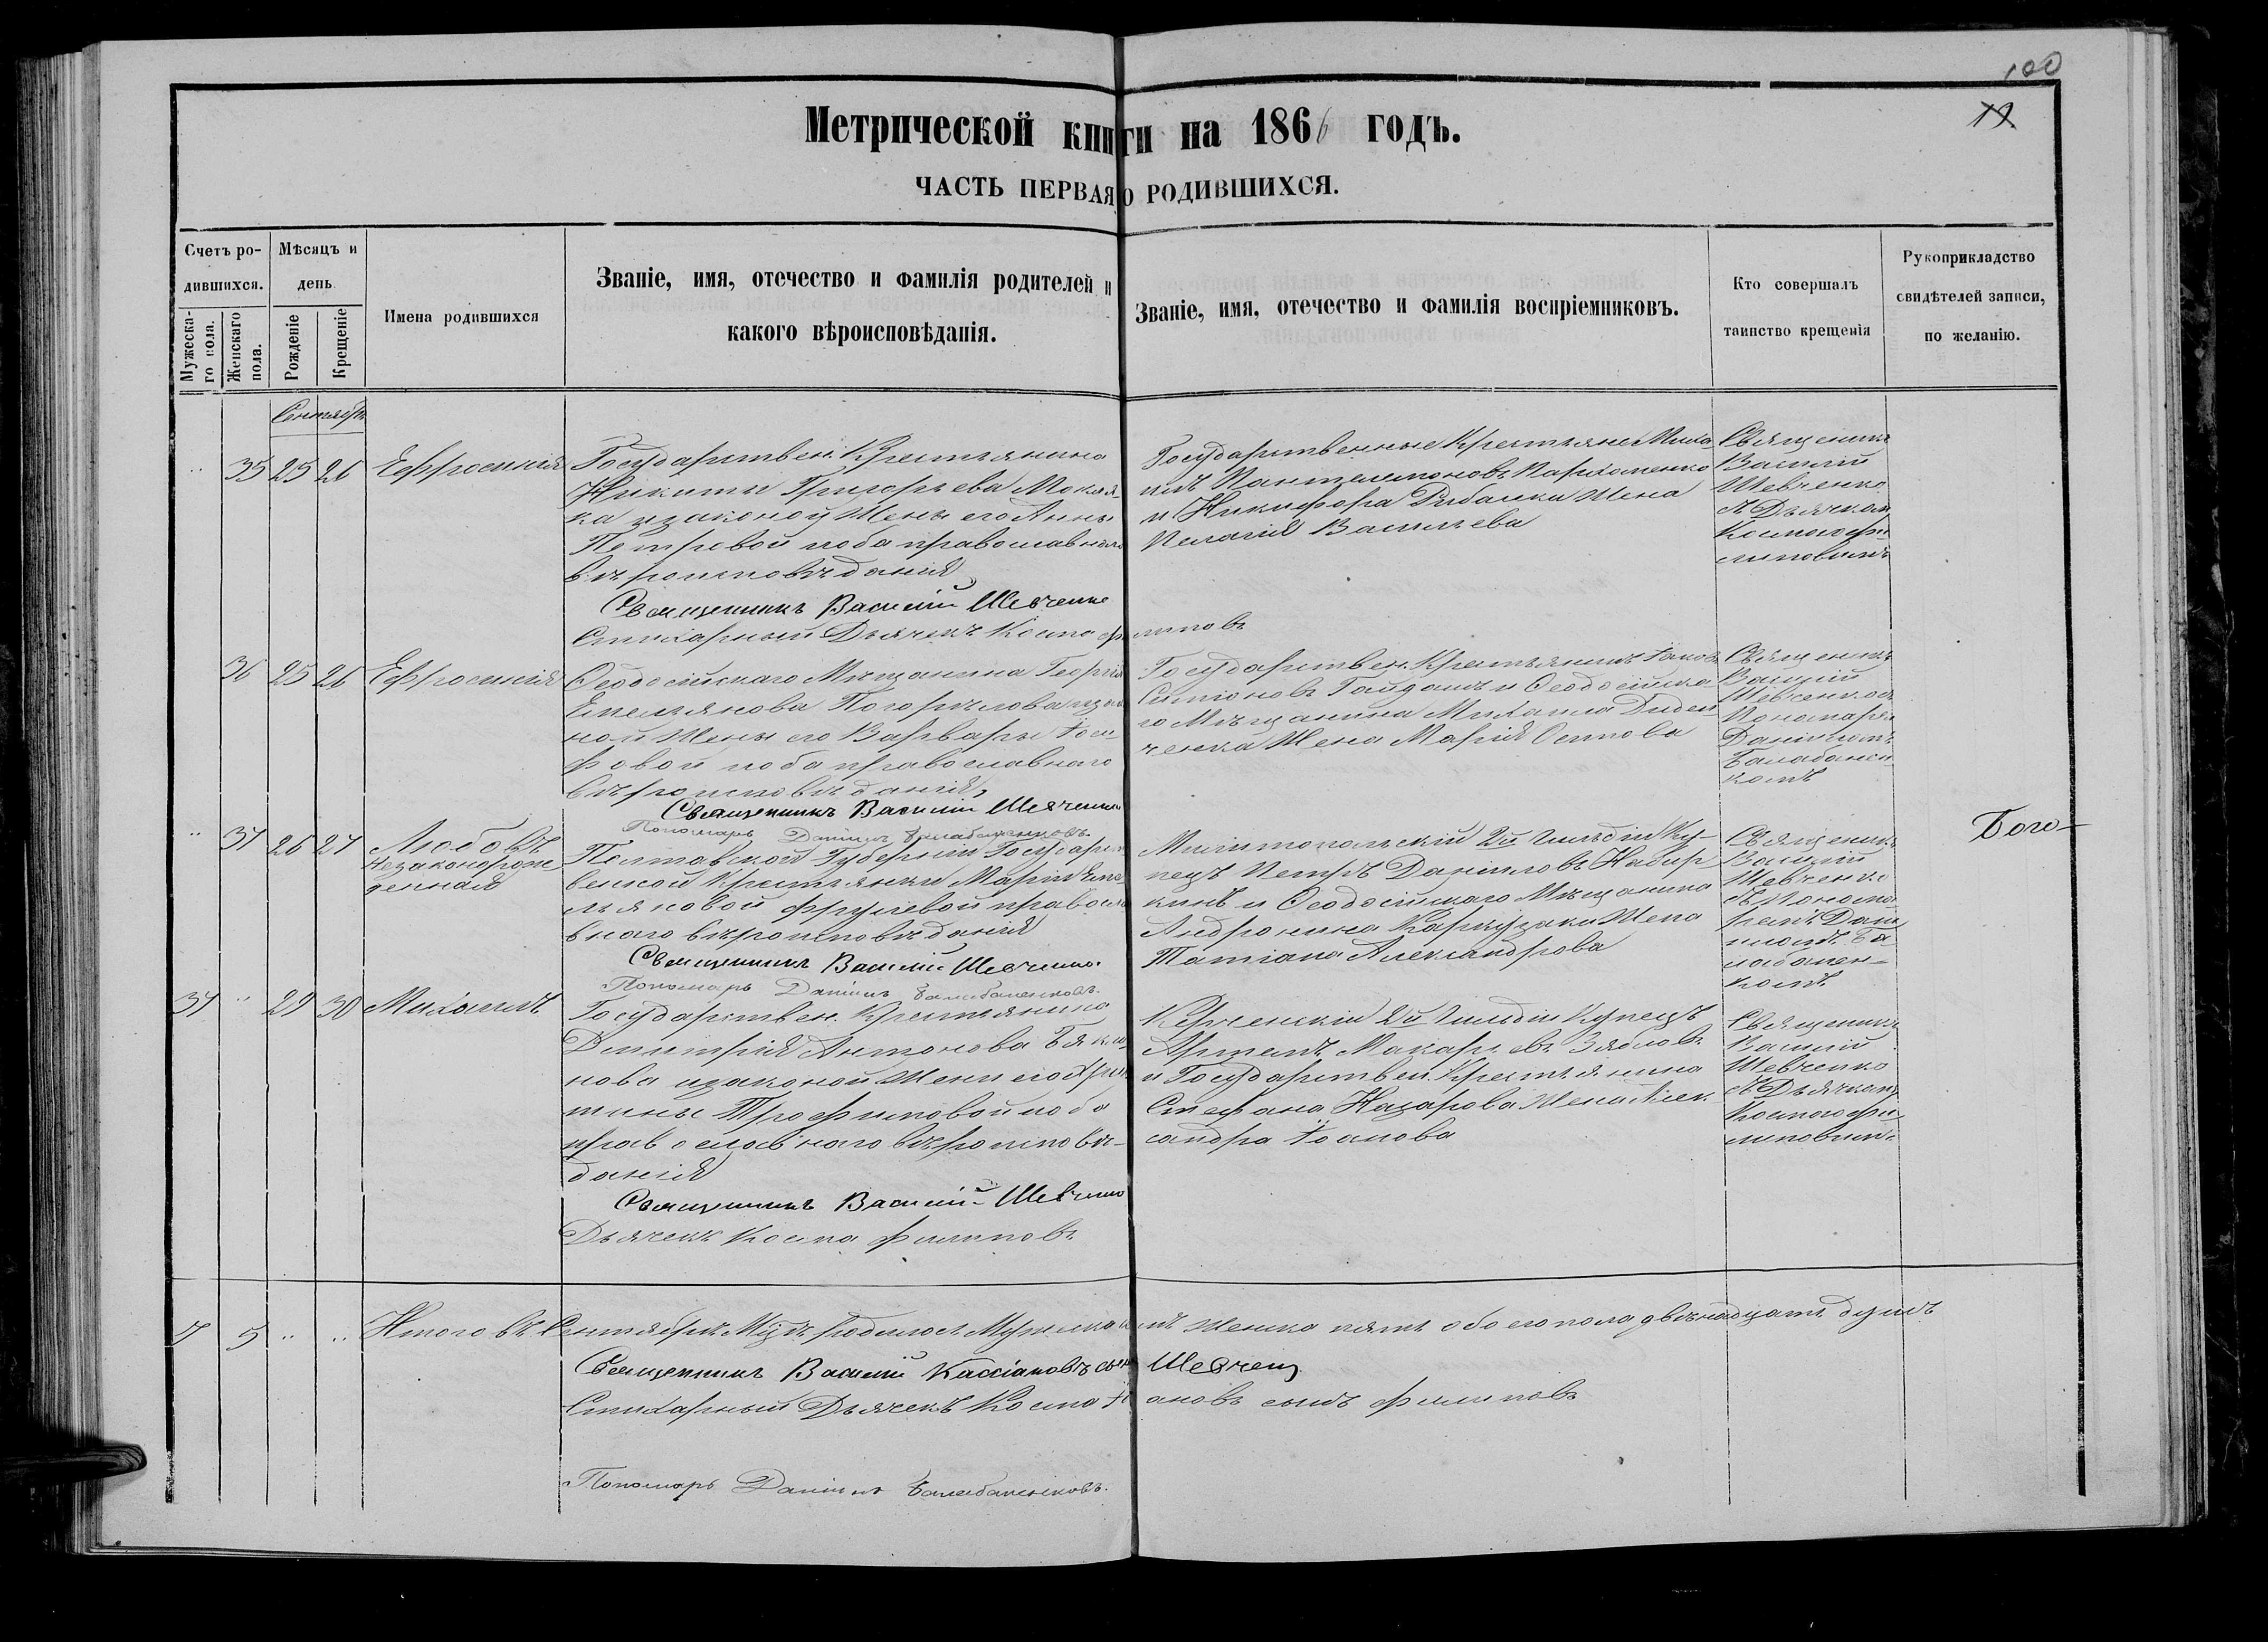 100
Метрической книги на 1866 годъ.
ЧАСТЬ ПЕРВАЯ О РОДИВШИХСЯ.
Счетъ ро-
дившихся.
Мужеска-
го пола.
Женскаго
пола.
Мѣсяцъ и
день
Рожденіе
Крещеніе
Имена родившихся
Званіе, имя, отечество и фамилія родителей и
какого вѣроисповѣданія.
Званіе, имя, отечество и фамилія воспріемниковъ.
Кто совершалъ
таинство крещенія
Рукоприкладство
свидѣтелей записи,
по желанію.
Сентябрь
35 25 26 Ефросинія
Государствен. Крестьянина
Никиты Григорьева
ка и законой Жены его Анны
Петровой оба православнаго
вѣроисповѣданія
Священникъ Василій Шевченко
Стихарный Дьячекъ Косма Филиповъ
Государственные Крестьяне Миха-
илъ Пантелемоновъ Пархоменко
и Никифора Рибалки Жена
Пелагія Васильева
Священикъ
Василій
Шевченко
съ Дьячком
Космою Фи-
липовымъ
36 25 26 Ефросинія
Ѳеодосійскаго Мѣщанина Георгія
Емельянова Погорѣлова и зако
ной Жены его Варвары Іоси-
фовой оба православнаго
вѣроисповѣданія,
Священникъ Василій Шевченко
Пономарь Даніилъ Балабаненковъ
Государствен. Крестьянинъ Іаковъ
Симоновъ Гайдашъ и Ѳеодосійска-
го Мѣщанина Михаила Диден-
ченка Жена Марія Осипова
Священикъ
Василій
Шевченко съ
Пономарем
Даніиломъ
Балабанен-
комъ
37 26 27 Любовь
Незаконорож
денная
Полтавской Губерніи Государст
венной Крестьянки Маріи Еме
льяновой православ
внаго вѣроисповѣданія
Священникъ Василій Шевченко.
Пономарь Даніилъ Балабаненковъ.
Милитопольскій 2й Гильдіи Ку-
пецъ Петръ Даніиловъ
кинъ и Ѳеодосійскаго Мѣщанина
Андроника Жена
Татіана Александрова
Священикъ
Василій
Шевченко
съ Понома
ремъ Дані
иломъ Ба-
лабанен-
комъ
Бого-
37 29 30 Михаилъ
Государствен. Крестьянина
Димитрія Антонова
нова и законой Жены его Хрис
тины Трофимовой оба
православнаго вѣроисповѣ-
данія
Священникъ Василій Шевченко
Дьячекъ Косма Филиповъ
Керченскій 2й Гильдіи Купецъ
Артемъ Макарьевъ Зябловъ
и Государствен. Крестьянина
Стефана Назарова Жена Алек
сандра Іоанова
Священикъ
Василій
Шевченко
съ Дьячкомъ
Космою Фи-
липовым
7 5 Итого въ Сентябрѣ Мцѣ родилось Мужеска семъ Женска пять обоего пола двѣнадцать душъ
Священникъ Василій Кассіановъ сынъ Шевченко
Стихарный Дьячекъ Косма Іоановъ сынъ Филиповъ
Пономарь Даніилъ Балабаненковъ.